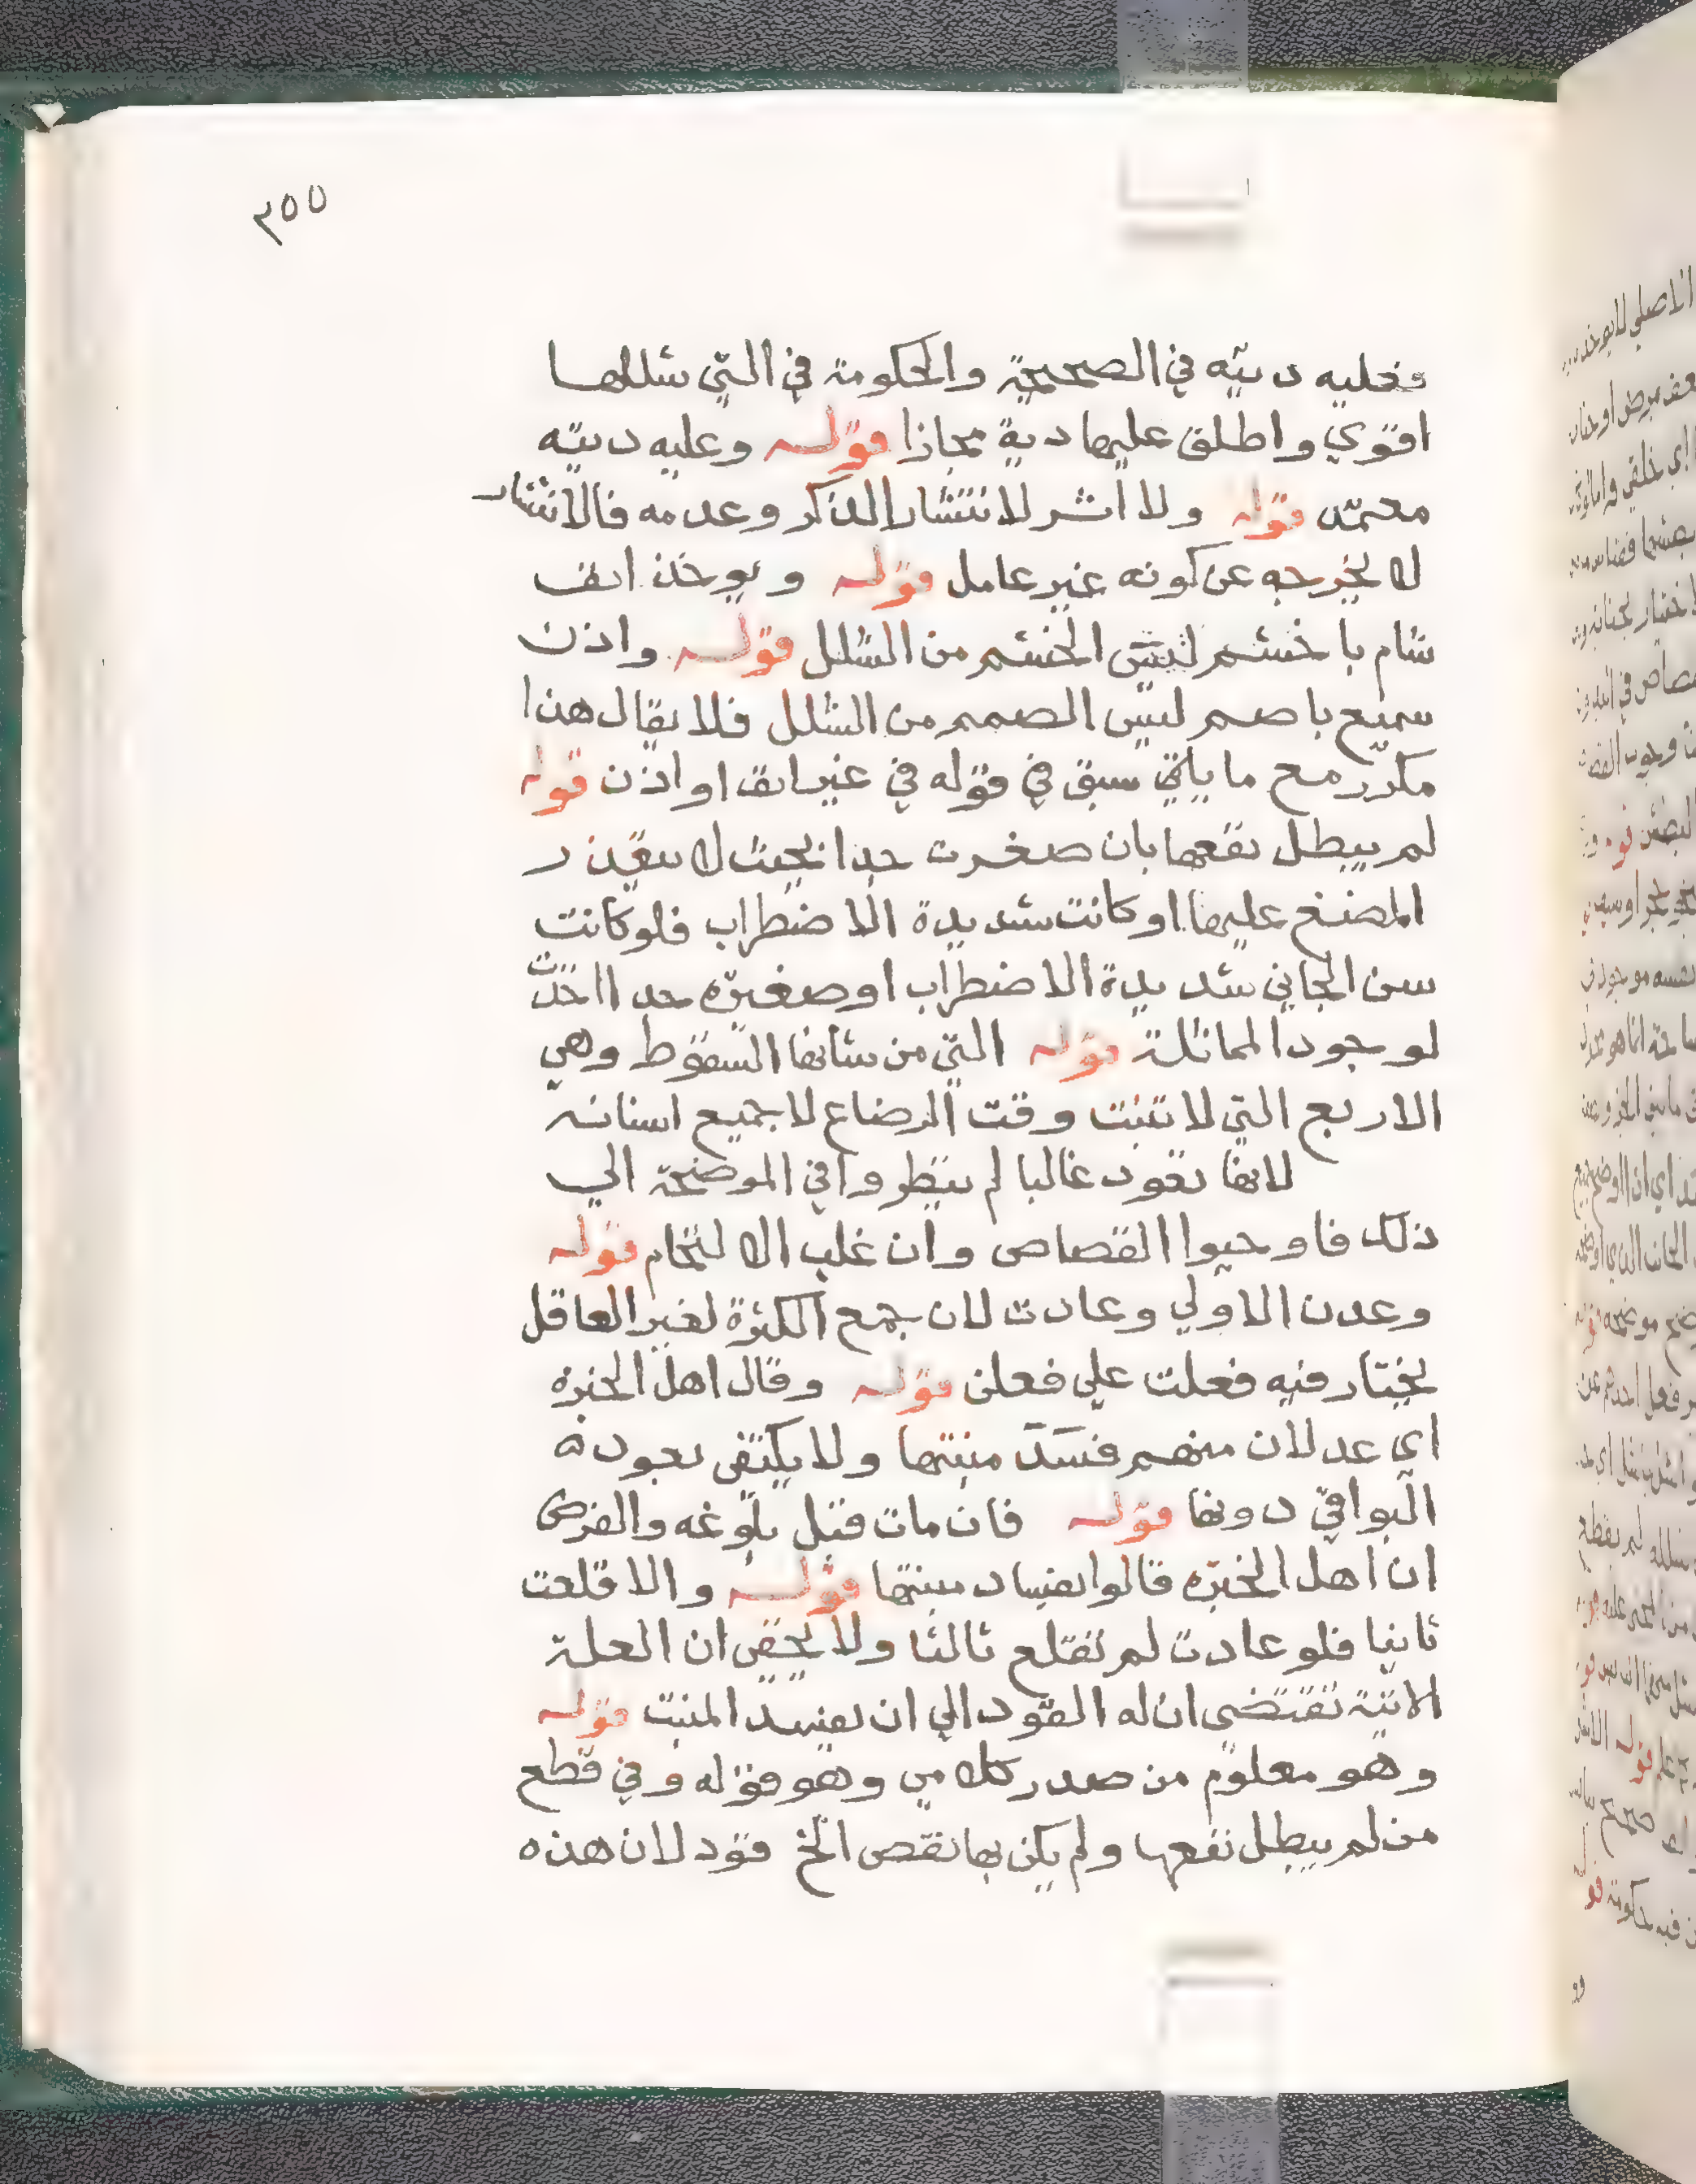 ٢٥٥
فعليه ديته في الصحيحة والحكومة في التي شللها
اقوي واطلق عليها دية مجازا قوله وعليه ديته
معتمد قوله ولا اثر لانتشار الذكر وعدمه فالانتشار
لا يخرجه عن كونه غير عامل قوله ويوخذ انف
شام باخشم ليس الخشم من الشلل قوله واذن
سميع باصم ليس الصمم من الشلل فلا يقال هذا
مكرر مع ما ياتي سبق في قوله في غير انف او اذن قوله
لم يبطل نفعها بان صغرت جدا بحيث لا يتعذر
المضغ عليها او كانت شديدة الاضطراب فلو كانت
سن الجاني شديدة الاضطراب او صغيرة جدا اخذت
لوجود المماثلة قوله التي من شانها السقوط وهي
الاربع التي لا تنبت وقت الرضاع لا جميع اسنانه
لانها تعود غالبا لم ينظروا في الموضحة الي
ذلك فاوجبوا القصاص وان غلب الالتحام قوله
وعدن الاولي وعادت لان جمع الكثرة لغير العاقل
يختار فيه فعلت علي فعلن قوله وقال اهل الخبرة
اي عدلان منهم فسد منبتها ولا يكتفى بعود
البواقي دونها قوله فان مات قبل بلوغه والفرض
ان اهل الخبرة قالوا بفساد منبتها قوله والا قلعت
ثانيا فلو عادت لم تقلع ثالثا ولا يخفى ان العلة
الاتية تقتضي ان له القود الي ان يفسد المنبت قوله
وهو معلوم من صدر كلامي وهو قوله وفي قطع
من لم يبطل نفعها ولم يكن بها نقص الخ قود لان هذه